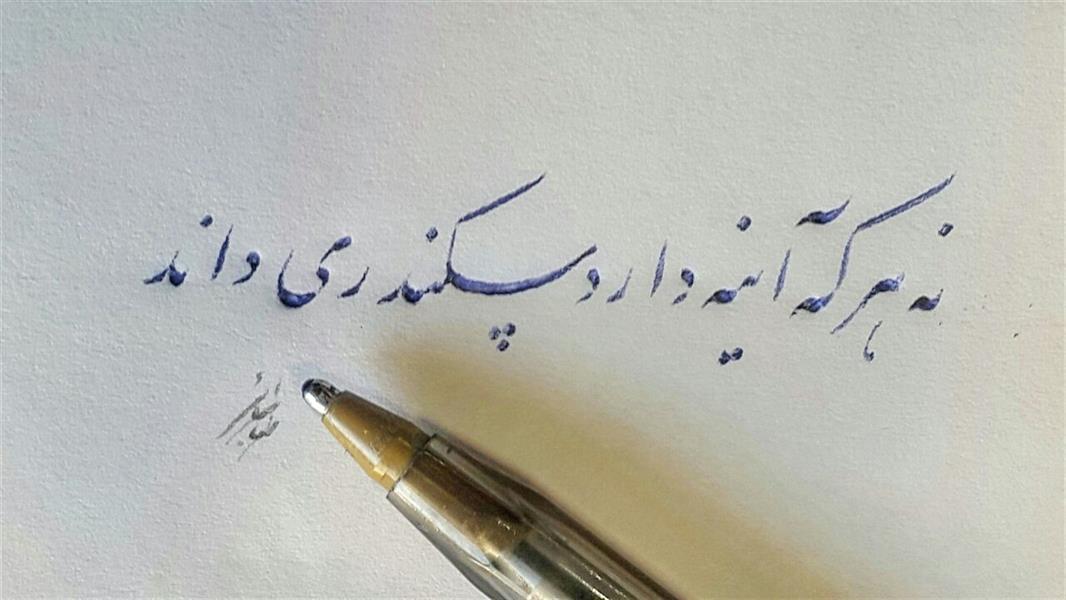 نه هر که آینه دارد سکندری داند